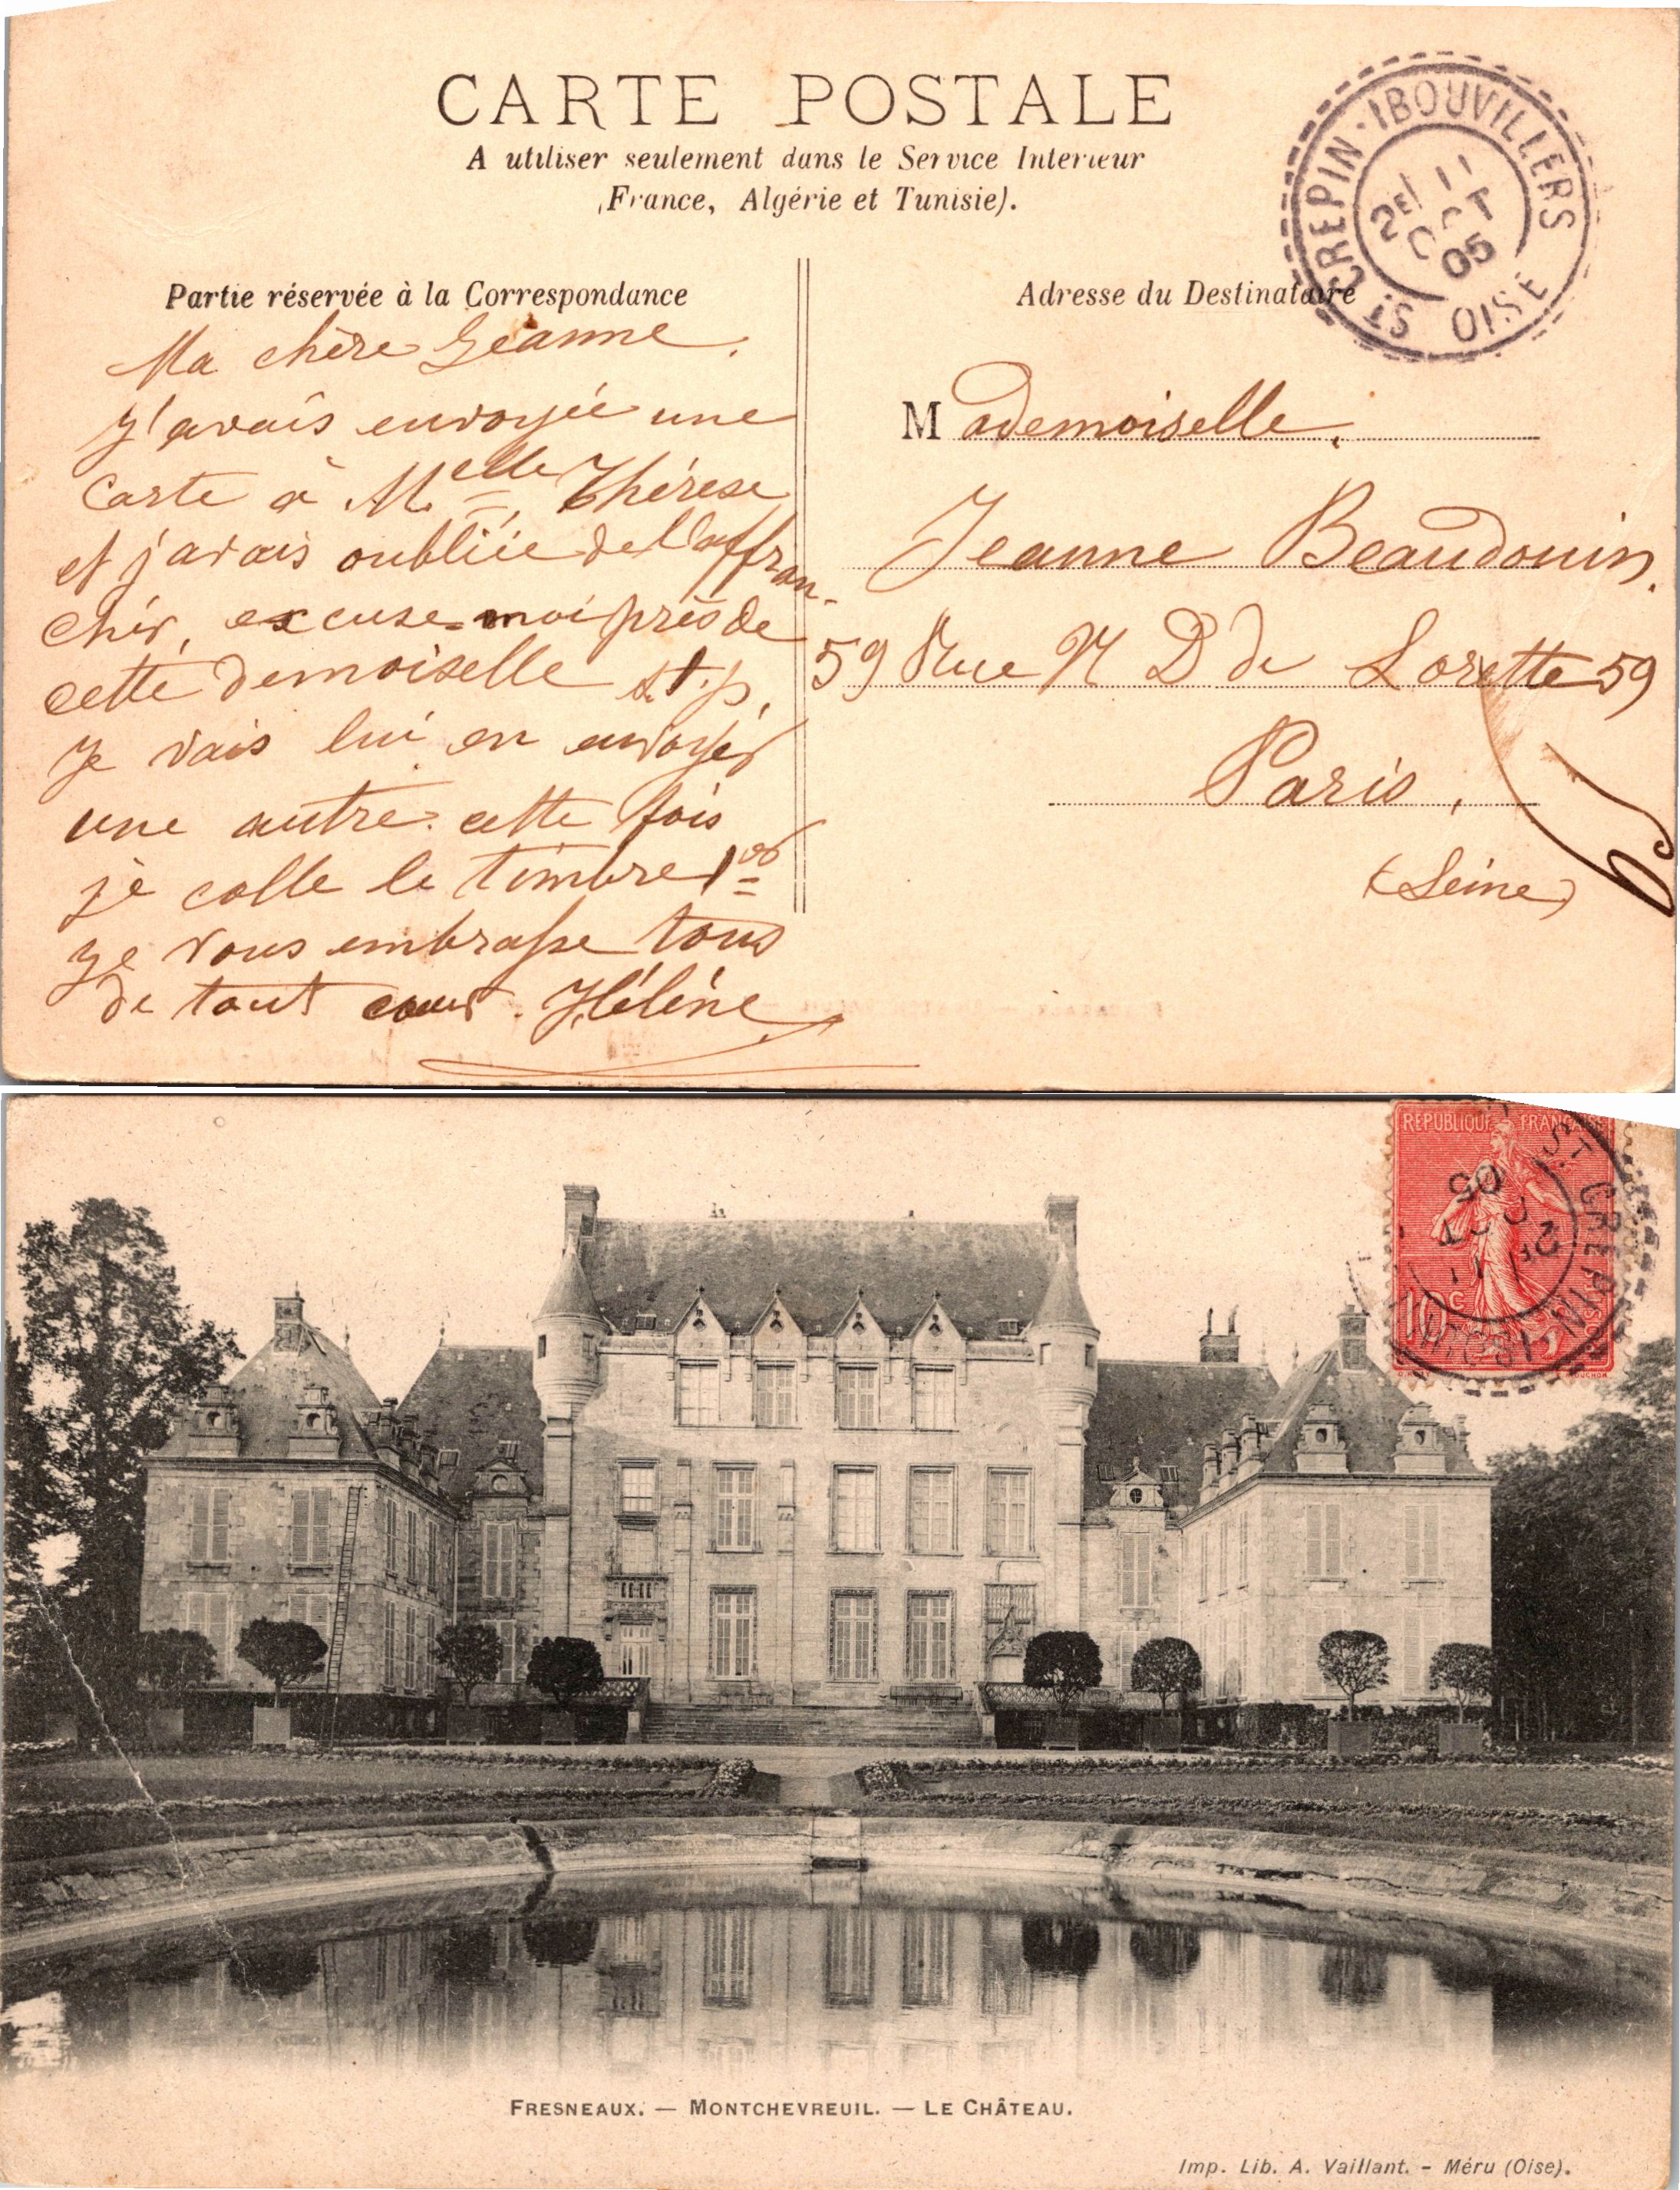 CARTE POSTALE
A utiliser seulement dans le Service Interieur
(France, Algérie et Tunisie).
ST CREPIN-IBOUVILLERS
2E/ 11
OCT
05
OISE
Partie réservée à la Correspondance
Ma chère Géanne,
J'avais envoyée une
Carte à M.elle Thérèse
et j'avais oubliée de l'affran-
chir, excuse-moi près de
cette demoiselle s.t.p.
Je vais lui en envoyer
une autre. cette fois
je colle le timbre 1er
Je vous embrasse tous
de tout cœur. Hélène
Adresse du Destinataire
Mademoiselle,
Jeanne Beaudouin,
59 Rue N D de Lorette 59
Paris,
(Seine)
REPUBLIQUE FRANÇAISE
10c
ST CREPIN
2E/ 11
OCT
05
FRESNEAUX. — MONTCHEVREUIL. — LE CHÂTEAU.
Imp. Lib. A. Vaillant. - Méru (Oise).